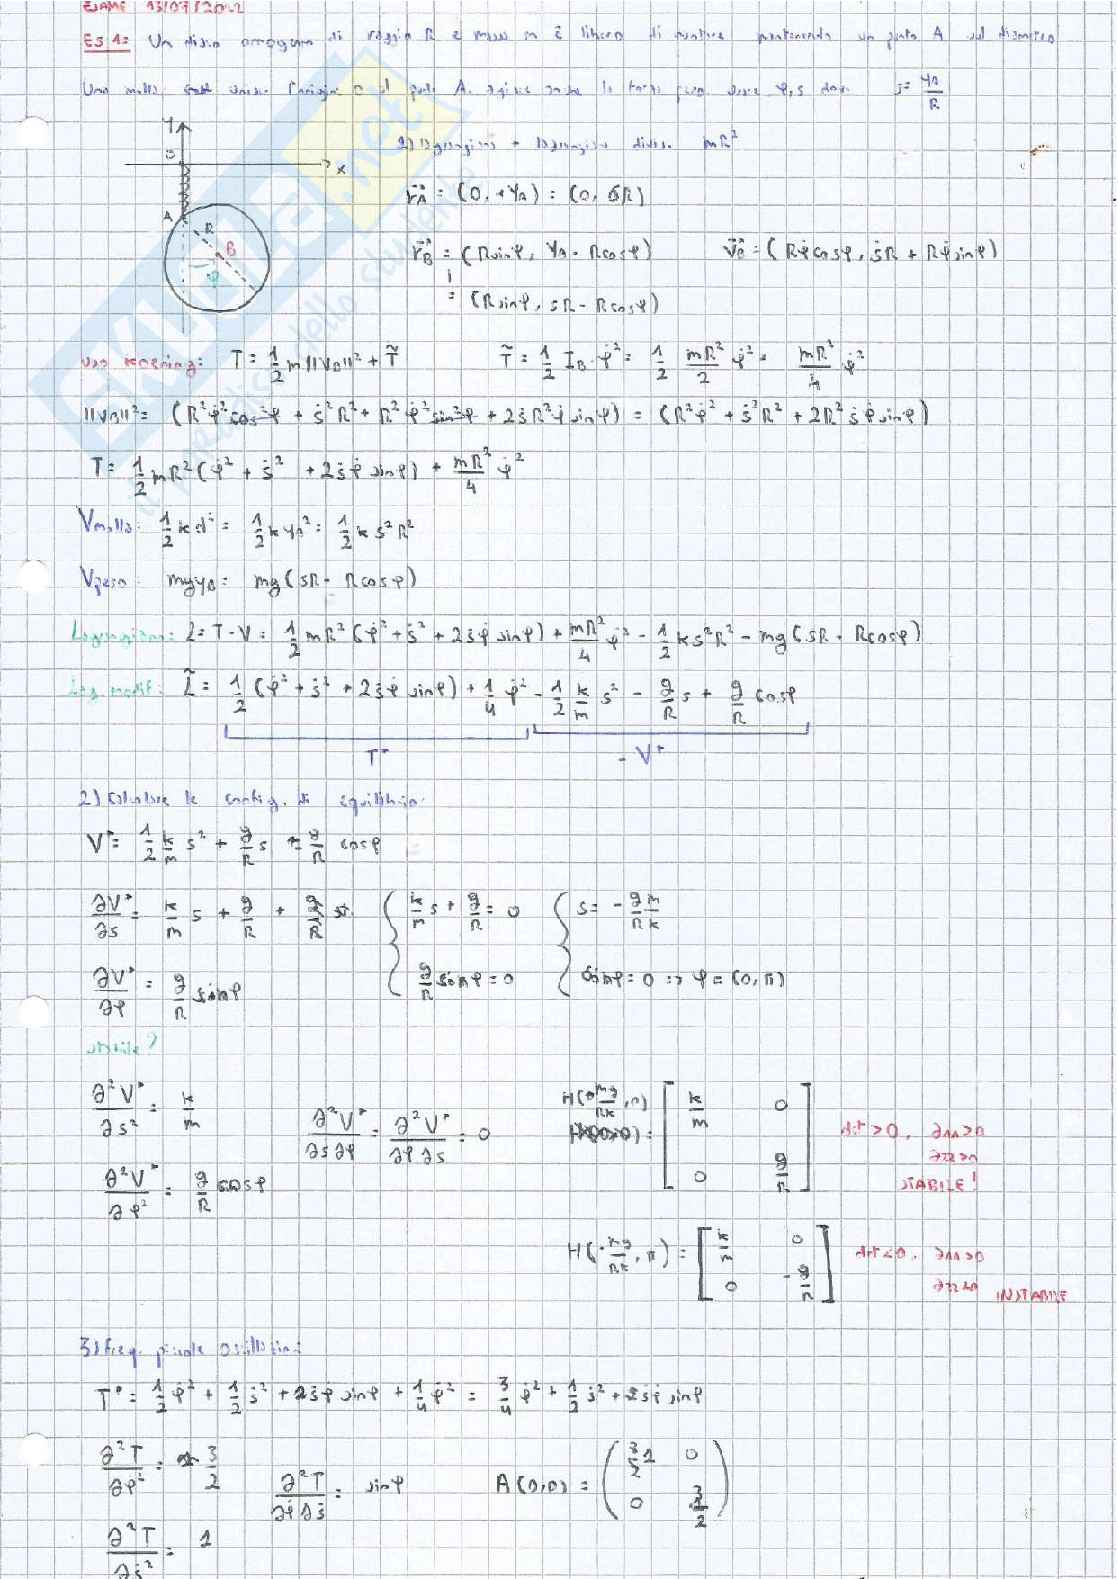 ESAME 13/07/2012
ES 1: Un disco omogeneo di raggio R e massa m è libero di ruotare mantenendo un punto A sul diametro
Una molla unisce l'origine O al punto A. agisce anche la forza peso. usare φ, s dove s = yA/R
y
O
x
A
R
B
φ
1) Lagrangiana + Lagrangiana divisa mR²
rA = (0, +yA) = (0, sR)
rB = (R sinφ, yA - R cosφ) vB = (Rφ̇ cosφ, ṡR + Rφ̇ sinφ)
= (R sinφ, sR - R cosφ)
uso Koenig: T = 1/2 m ||vB||² + T̃ T̃ = 1/2 IB · φ̇² = 1/2 mR²/2 φ̇² = mR²/4 φ̇²
||vB||² = (R²φ̇² cos²φ + ṡ²R² + R²φ̇² sin²φ + 2ṡR²φ̇ sinφ) = (R²φ̇² + ṡ²R² + 2R²ṡφ̇ sinφ)
T = 1/2 mR² (φ̇² + ṡ² + 2ṡφ̇ sinφ) + mR²/4 φ̇²
Vmolla: 1/2 k d² = 1/2 k yA² = 1/2 k s²R²
Vpeso: mgyB = mg(sR - R cosφ)
Lagrangiana: L = T - V = 1/2 mR² (φ̇² + ṡ² + 2ṡφ̇ sinφ) + mR²/4 φ̇² - 1/2 k s²R² - mg(sR - R cosφ)
Lag modif: L̃ = 1/2 (φ̇² + ṡ² + 2ṡφ̇ sinφ) + 1/4 φ̇² - 1/2 k/m s² - g/R s + g/R cosφ
T* - V*
2) Calcolare le config. di equilibrio.
V* = 1/2 k/m s² + g/R s - g/R cosφ
∂V*/∂s = k/m s + g/R { k/m s + g/R = 0 { s = - g/R m/k
∂V*/∂φ = g/R sinφ g/R sinφ = 0 sinφ = 0 => φ = (0, π)
stabilità?
∂²V*/∂s² = k/m ∂²V*/∂s∂φ = ∂²V*/∂φ∂s = 0 H(-mg/Rk, 0) = [ k/m 0 0 g/R ] det > 0,
STABILE!
∂²V*/∂φ² = g/R cosφ
H(-mg/Rk, π) = [ k/m 0 0 -g/R ] det < 0,
INSTABILE
3) Freq. piccole oscillazioni
T* = 1/2 φ̇² + 1/2 ṡ² + 2ṡφ̇ sinφ + 1/4 φ̇² = 3/4 φ̇² + 1/2 ṡ² + 2ṡφ̇ sinφ
∂²T/∂φ̇² = 3/2 ∂²T/∂φ̇∂ṡ = sinφ A(0,0) = ( 1 0 0 3/2 )
∂²T/∂ṡ² = 1